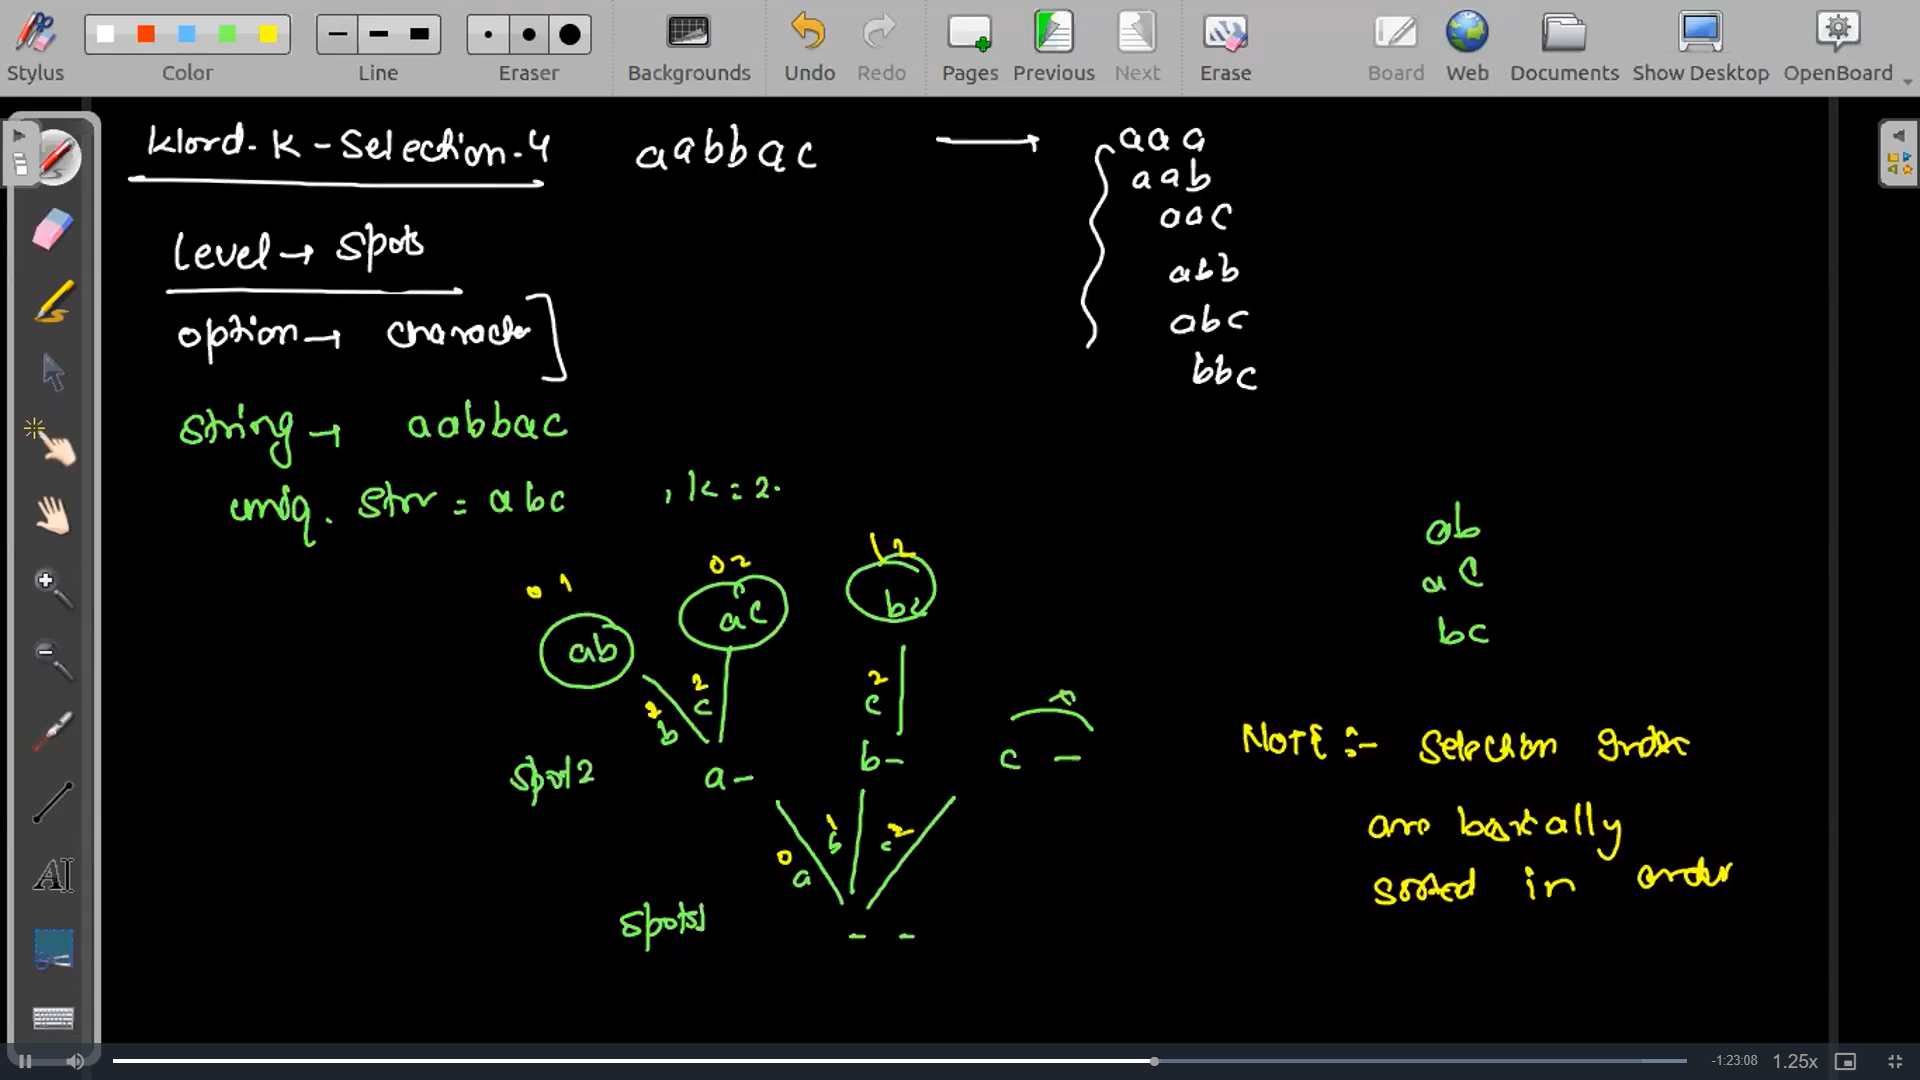 Stylus
Color
Line
Eraser
Backgrounds
Undo
Redo
Pages
Previous
Next
Erase
Board
Web
Documents
Show Desktop
OpenBoard
klord-K-Selection-4
aabbac
aaa
aab
aac
abb
abc
bbc
Level→ Spots
option→ character
string→ aabbac
uniq. str = abc , k = 2.
0 1
0 2
1 2
ab
ac
bc
2
b
2
c
2
c
x
Spot2
a -
b -
c -
0
a
1
b
2
c
Spots1
- -
ab
ac
bc
NOTE :- Selection order
are basically
sorted in order
-1:23:08
1.25x